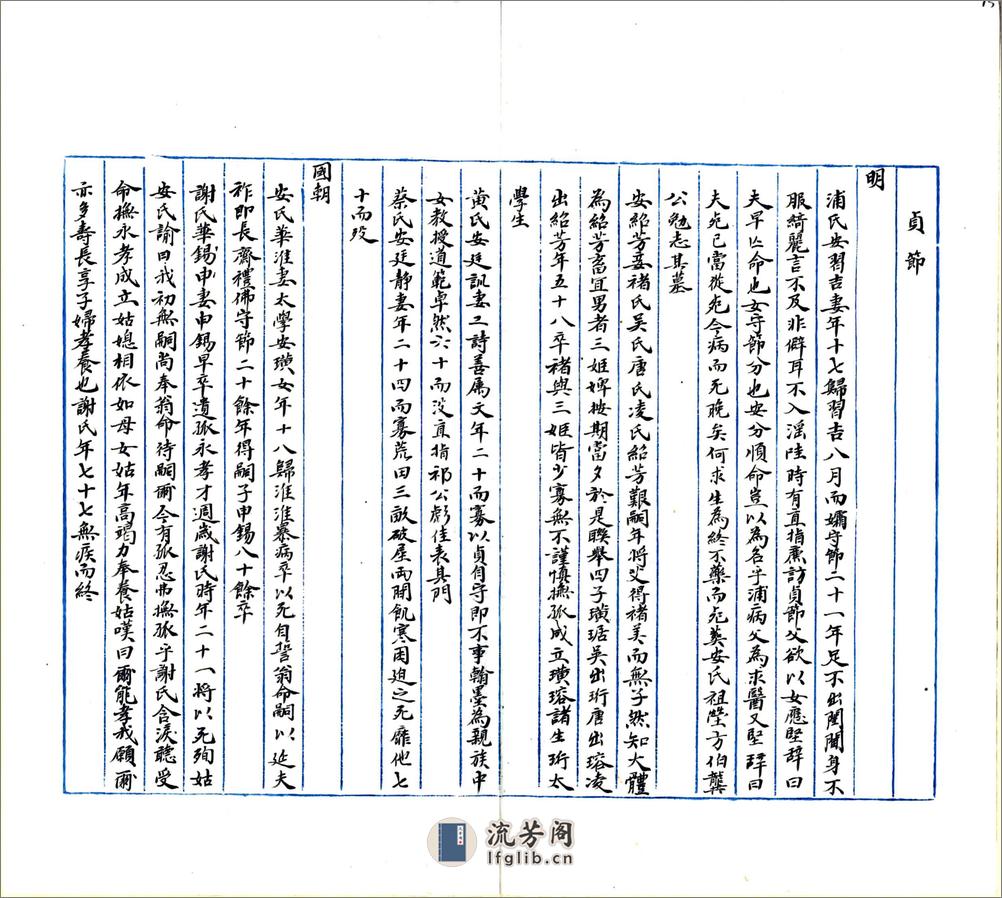 貞節
明
浦氏安習吉妻年十七歸習吉八月而孀守節二十一年足不出閨闥身不
服綺麗言不及非僻耳不入淫哇時有直指廉訪貞節父欲以女應堅辭曰
夫早亡命也女守節分也安分順命豈以為名乎浦病父為求醫又堅辭曰
夫死已當從死今病而死晚矣何求生為終不藥而死葬安氏祖塋方伯龔
公勉志其墓
安紹芳妾褚氏吳氏唐氏凌氏紹芳艱嗣年將艾得褚美而無子然知大體
為紹芳畜宜男者三姬婢按期當夕於是聯舉四子璜琚吳出珩唐出瑢凌
出紹芳年五十八卒褚與三姬皆少寡無不謹慎撫孤成立璜瑢諸生珩太
學生
黃氏安廷訊妻工詩善屬文年二十而寡以貞自守即不事翰墨為親族中
女教授道範卓然六十而沒直指祁公彪佳表其門
蔡氏安廷靜妻年二十四而寡荒田三畝破屋兩間飢寒困迫之死靡他七
十而歿
國朝
安氏華淮妻太學安璜女年十八歸淮淮暴病卒以死自誓翁命嗣以延夫
祚即長齋禮佛守節二十餘年得嗣子申錫八十餘卒
謝氏華錫申妻申錫早卒遺孤永孝才週歲謝氏時年二十一將以死殉姑
安氏諭曰我初無嗣尚奉翁命待嗣爾今有孤忍弗撫孤乎謝氏含淚聽受
命撫永孝成立姑媳相依如母女姑年高竭力奉養姑嘆曰爾能孝我願爾
亦多壽長享子婦孝養也謝氏年七十七無疾而終
流芳阁
lfglib.cn